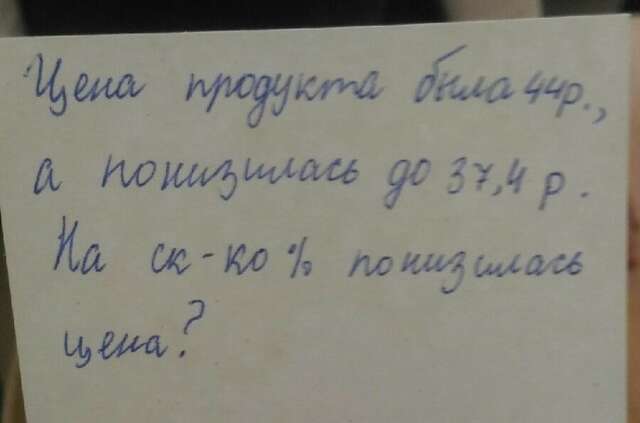 Цена продукта была 44р.,
а понизилась до 37,4 р.
На ск-ко % понизилась
цена?